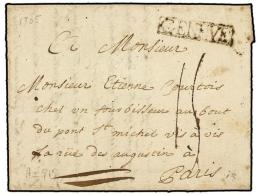 1705
GENEVE
A Monsieur
Monsieur Etienne Courtois
chez un fourbisseur au bout
du pont St michel vis a vis
la rüe des augustin à
Paris